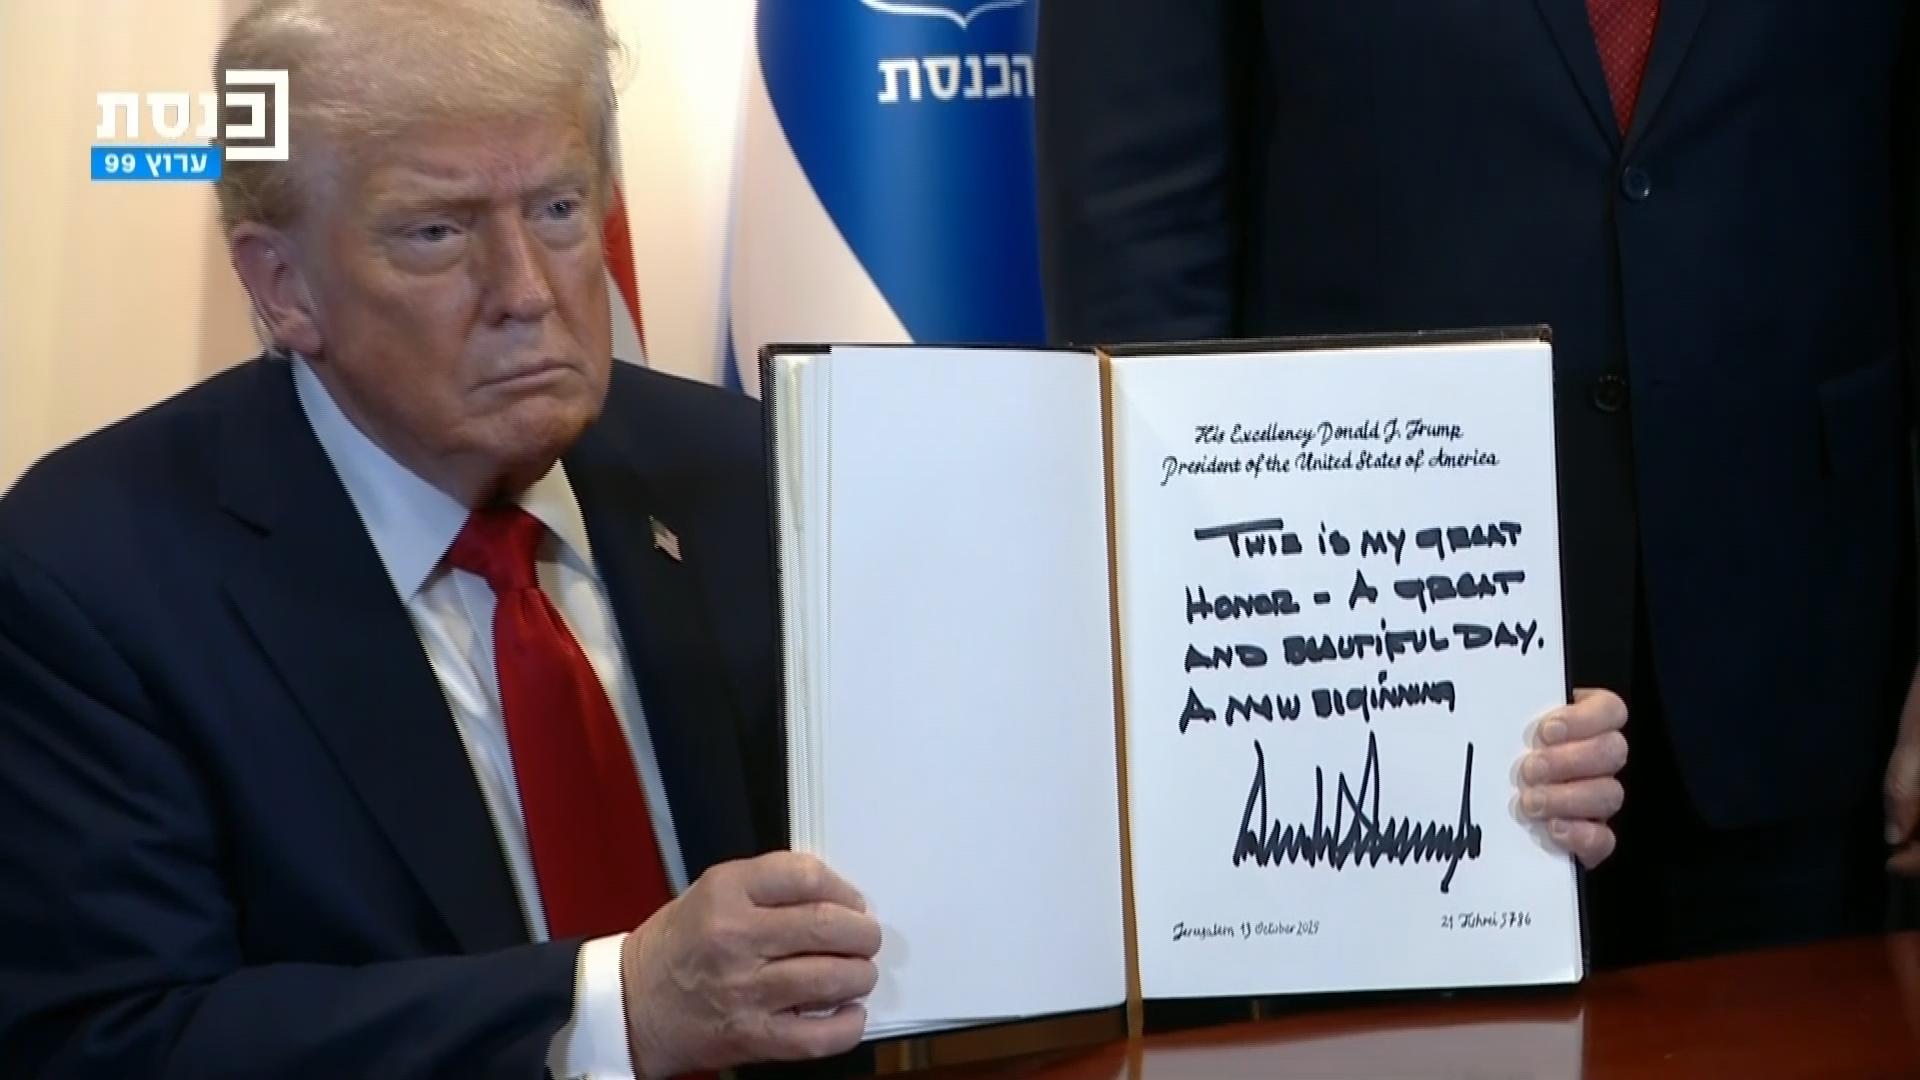 כנסת
ערוץ 99
הכנסת
His Excellency Donald J. Trump
President of the United States of America
THIS IS MY GREAT
HONOR - A GREAT
AND BEAUTIFUL DAY.
A NEW BEGINNING
Jerusalem, 13 October 2025
21 Tishrei 5786